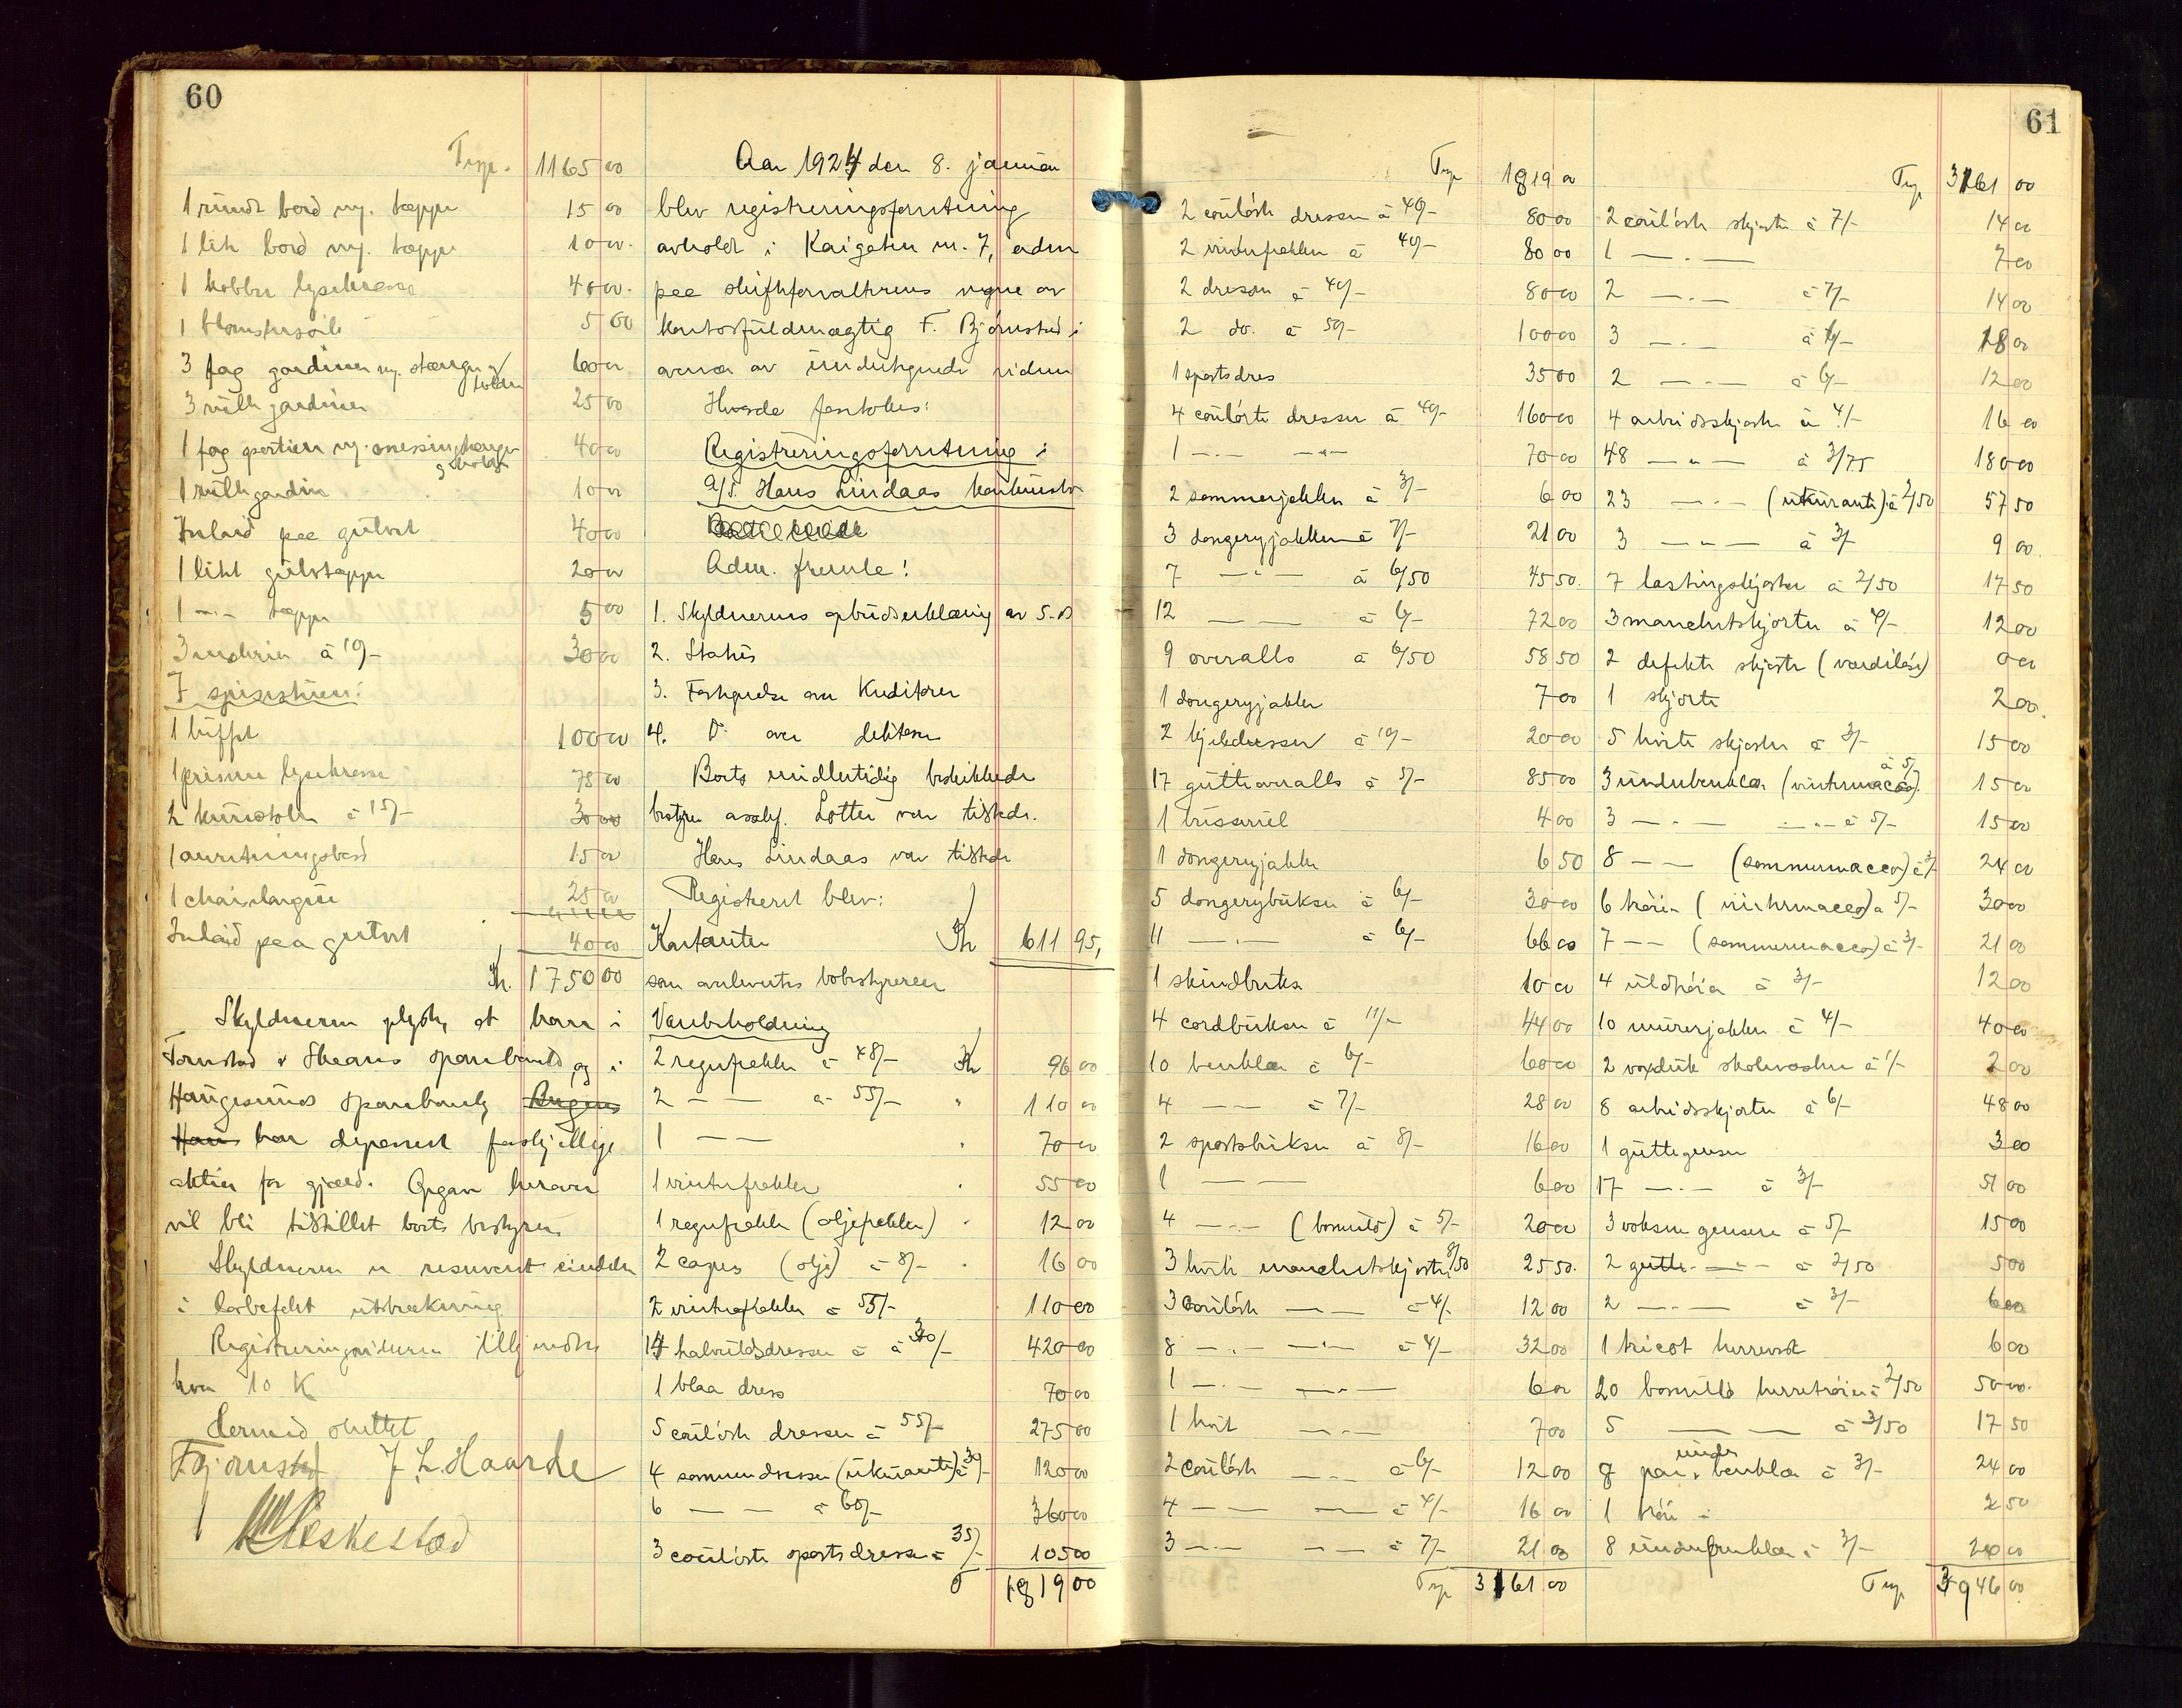 60
Trp. 1165 00
1 rundt bord m. tæppe 15 00
1 lite bord m. tæppe 10 00
1 kobber lysekrone 40 00
1 blomstersøile 5 00
3 fag gardiner m. stænger og holder 60 00
3 rullegardiner 25 00
1 fag portierer m. messingstænger og holder 40 00
1 rullegardin 10 00
Inlaid paa gulvet 40 00
1 litet gulvtæppe 20 00
1 -"- tæppe 5 00
3 malerier á 10/- 30 00
I spisestuen:
1 buffet 100 00
1 prisme lysekrone 75 00
2 kurvstoler á 15/- 30 00
1 anretningsbord 15 00
1 chaiselongue 25 00
Inlaid paa gulvet 40 00
Kr. 1750 00
Skyldneren oplyste, at han i
Torvestad & Skaare sparebank og i
Haugesunds sparebank
har deponert forskjellige
aktier for gjæld. Opgave herover
vil bli tilstillet boets bestyrer.
Skyldneren er reservert enhver
i lovbefalt utstrækning
Registreringsvidnerne tilkjendtes
hver 10 K
Dermed sluttet
F Bjørnstad J. L. Haarde
Aar 1924 den 8. januar
blev registreringsforretning
avholdt i Kaigaten nr. 7, adm
paa skifteforvalterens vegne av
kontorfuldmægtig F. Bjørnstad i
overvær av undertegnede vidner
Hvorda foretokes:
Registreringsforretning i
A/S. Hans Lindaas konkursbo
Adm. fremla:
1. Skyldnerens opbudserklæring av 5. ds
2. Status
3. Fortegnelse over Kreditorer
4. Do over debitorer
Boets midlertidig beskikkede
bestyrer assesf. Lothe var tilstede.
Hans Lindaas var tilstede
Registrert blev:
Kontanter Kr 611 95,
som avleveredes bobestyreren
Varebeholdning
2 regnfrakker á 48/- Kr 96 00
2 -"- á 55/- " 110 00
1 -"- " 70 00
1 vinterfrakke " 55 00
1 regnfrakke (oljefrakke) " 12 00
2 capes (olje) á 8/- " 16 00
2 vinterfrakker á 55/- 110 00
14 halvuldsdresser á 30/- 420 00
1 blaa dress 70 00
5 coulørte dresser á 55/- 275 00
4 sommerdresser (ukurante) á 30/- 120 00
6 -"- á 60/- 360 00
3 coulørte sportsdresser á 35/- 105 00
T 1819 00
61
Trp 1819 00
2 coulørte dresser á 40/- 80 00
2 vinterfrakker á 40/- 80 00
2 dresser á 40/- 80 00
2 do. á 50/- 100 00
1 sportsdres 35 00
4 coulørte dresser á 40/- 160 00
1 -"- -"- 70 00
2 sommerjakker á 3/- 6 00
3 dongeryjakker á 7/- 21 00
7 -"- á 6/50 45 50
12 -"- á 6/- 72 00
9 overalls á 6/50 58 50
1 dongeryjakke 7 00
2 kjeledresser á 10/- 20 00
17 gutteoveralls á 5/- 85 00
1 busserul 4 00
1 dongeryjakke 6 50
5 dongerybukser á 6/- 30 00
11 -"- á 6/- 66 00
1 skindbukse 10 00
4 cordbukser á 11/- 44 00
10 benklær á 6/- 60 00
4 -"- á 7/- 28 00
2 sportsbukser á 8/- 16 00
1 -"- 6 00
4 -"- (bomuld) á 5/- 20 00
3 hvite manchetskjorter 8/50 25 50
3 coulørte -"- á 4/- 12 00
8 -"- -"- á 4/- 32 00
1 -"- -"- 6 00
1 hvit -"- 7 00
2 coulørte -"- á 6/- 12 00
4 -"- -"- á 4/- 16 00
3 -"- -"- á 7/- 21 00
Trp 3161 00
Trp 3161 00
2 coulørte skjorter á 7/- 14 00
1 -"- 7 00
2 -"- á 7/- 14 00
3 -"- á 6/- 18 00
2 -"- á 6/- 12 00
4 arbeidsskjorter á 4/- 16 00
48 -"- á 3/75 180 00
23 -"- (ukurante) á 2/50 57 50
3 -"- á 3/- 9 00
7 lastingskjorter á 2/50 17 50
3 manchetskjorter á 4/- 12 00
2 defekte skjorter (værdiløse) 0 00
1 skjorte 2 00
5 hvite skjorter á 3/- 15 00
3 underbenklær (vintermacco) á 5/- 15 00
3 -"- -"- á 5/- 15 00
8 -"- (sommermacco) á 3/- 24 00
6 trøier (vintermacco) á 5/- 30 00
7 -"- (sommermacco) á 3/- 21 00
4 uldtrøier á 3/- 12 00
10 murerjakker á 4/- 40 00
2 voxduk skolevesker á 1/- 2 00
8 arbeidsskjorter á 6/- 48 00
1 guttegenser 3 00
17 -"- á 3/- 51 00
3 voksne gensere á 5/- 15 00
2 gutte -"- á 2/50 5 00
2 -"- á 3/- 6 00
1 tricot herrevest 6 00
20 bomulds herretrøier á 2/50 50 00
5 -"- -"- á 3/50 17 50
8 par underbenklær á 3/- 24 00
1 trøie 2 50
8 underbenklær á 3/- 24 00
Trp 3946 00